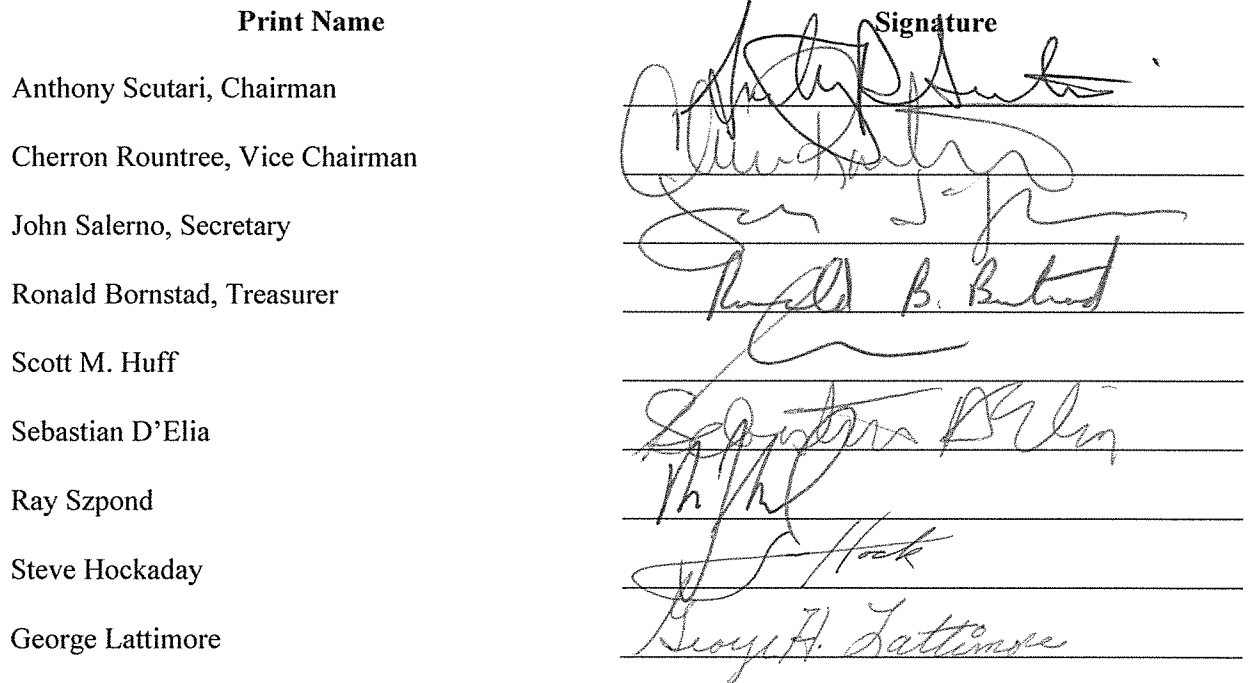 Print Name Signature
Anthony Scutari, Chairman
Cherron Rountree, Vice Chairman
John Salerno, Secretary
Ronald Bornstad, Treasurer Ronald B.
Scott M. Huff
Sebastian D’Elia Sebastian D'Elia
Ray Szpond
Steve Hockaday Hock
George Lattimore George H. Lattimore